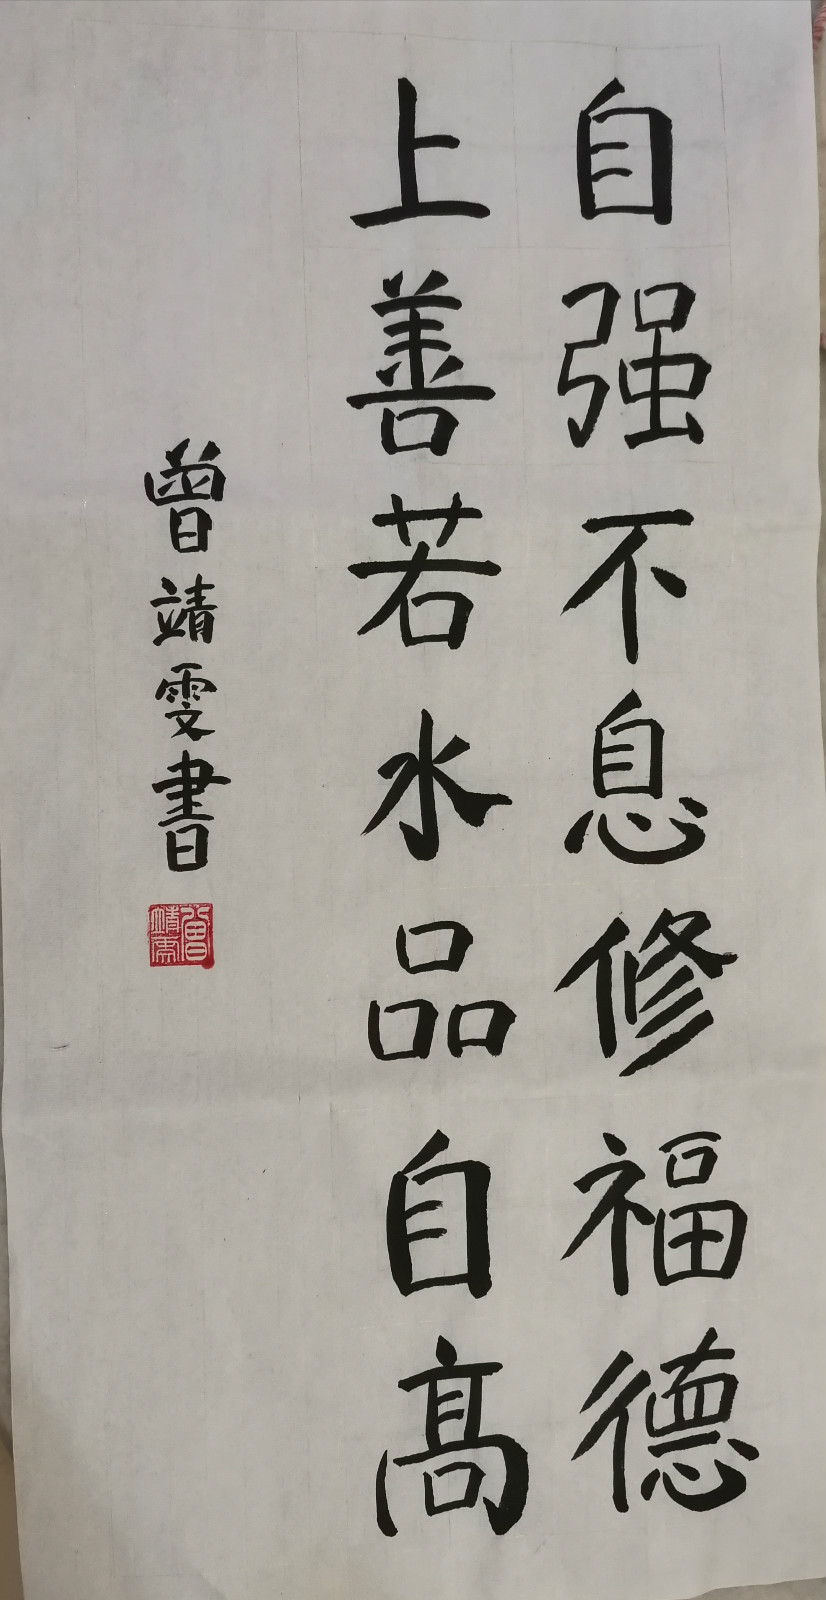 自强不息修福德
上善若水品自髙
曾靖雯書
曾靖雯